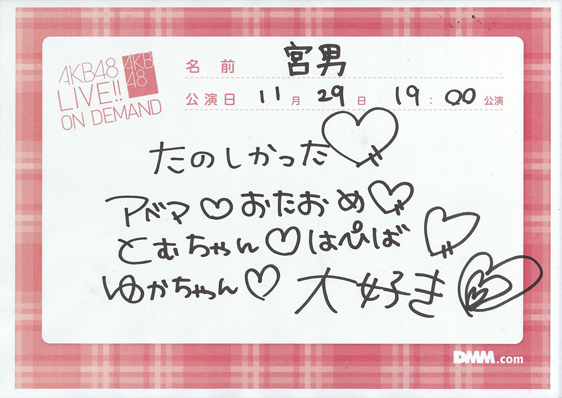 AKB48
LIVE!!
ON DEMAND
AKB
48
名前 宮男
公演日 11月29日 19:00公演
たのしかった♡
アベマ♡おたおめ♡
とむちゃん♡はぴば♡
ゆかちゃん♡大好き♡
DMM.com